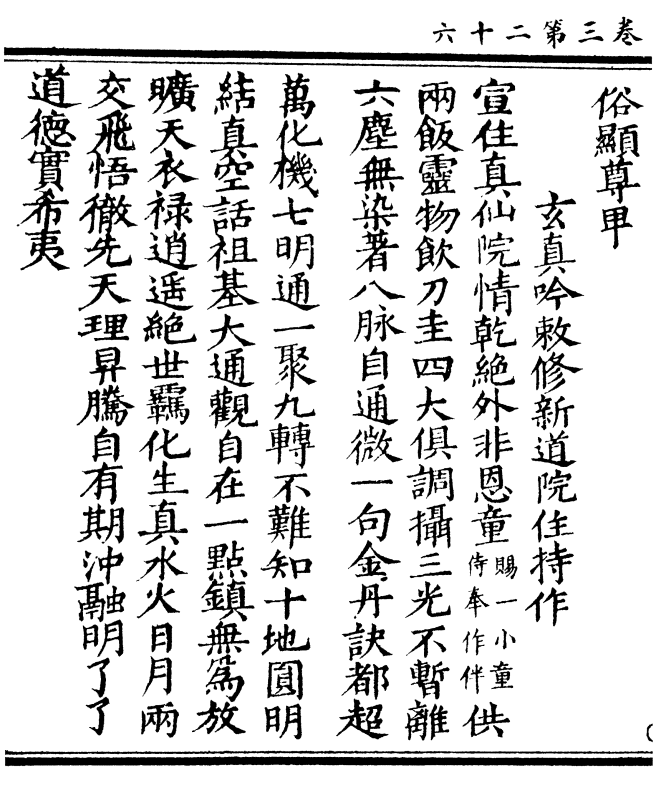 卷三第二十六
俗顯尊甲
玄真吟敕修新道院住持作
宣住真仙院情乾絶外非恩童賜一小童侍奉作伴供
兩飯靈物飲刀圭四大俱調攝三光不暫離
六塵無染著八脉自通微一句金丹訣都超
萬化機七明通一聚九轉不難知十地圓明
結真空話祖基大通觀自在一點鎮無爲放
曠天衣禄逍遥絶世羈化生真水火日月兩
交飛悟徹先天理昇騰自有期沖融明了了
道德實希夷